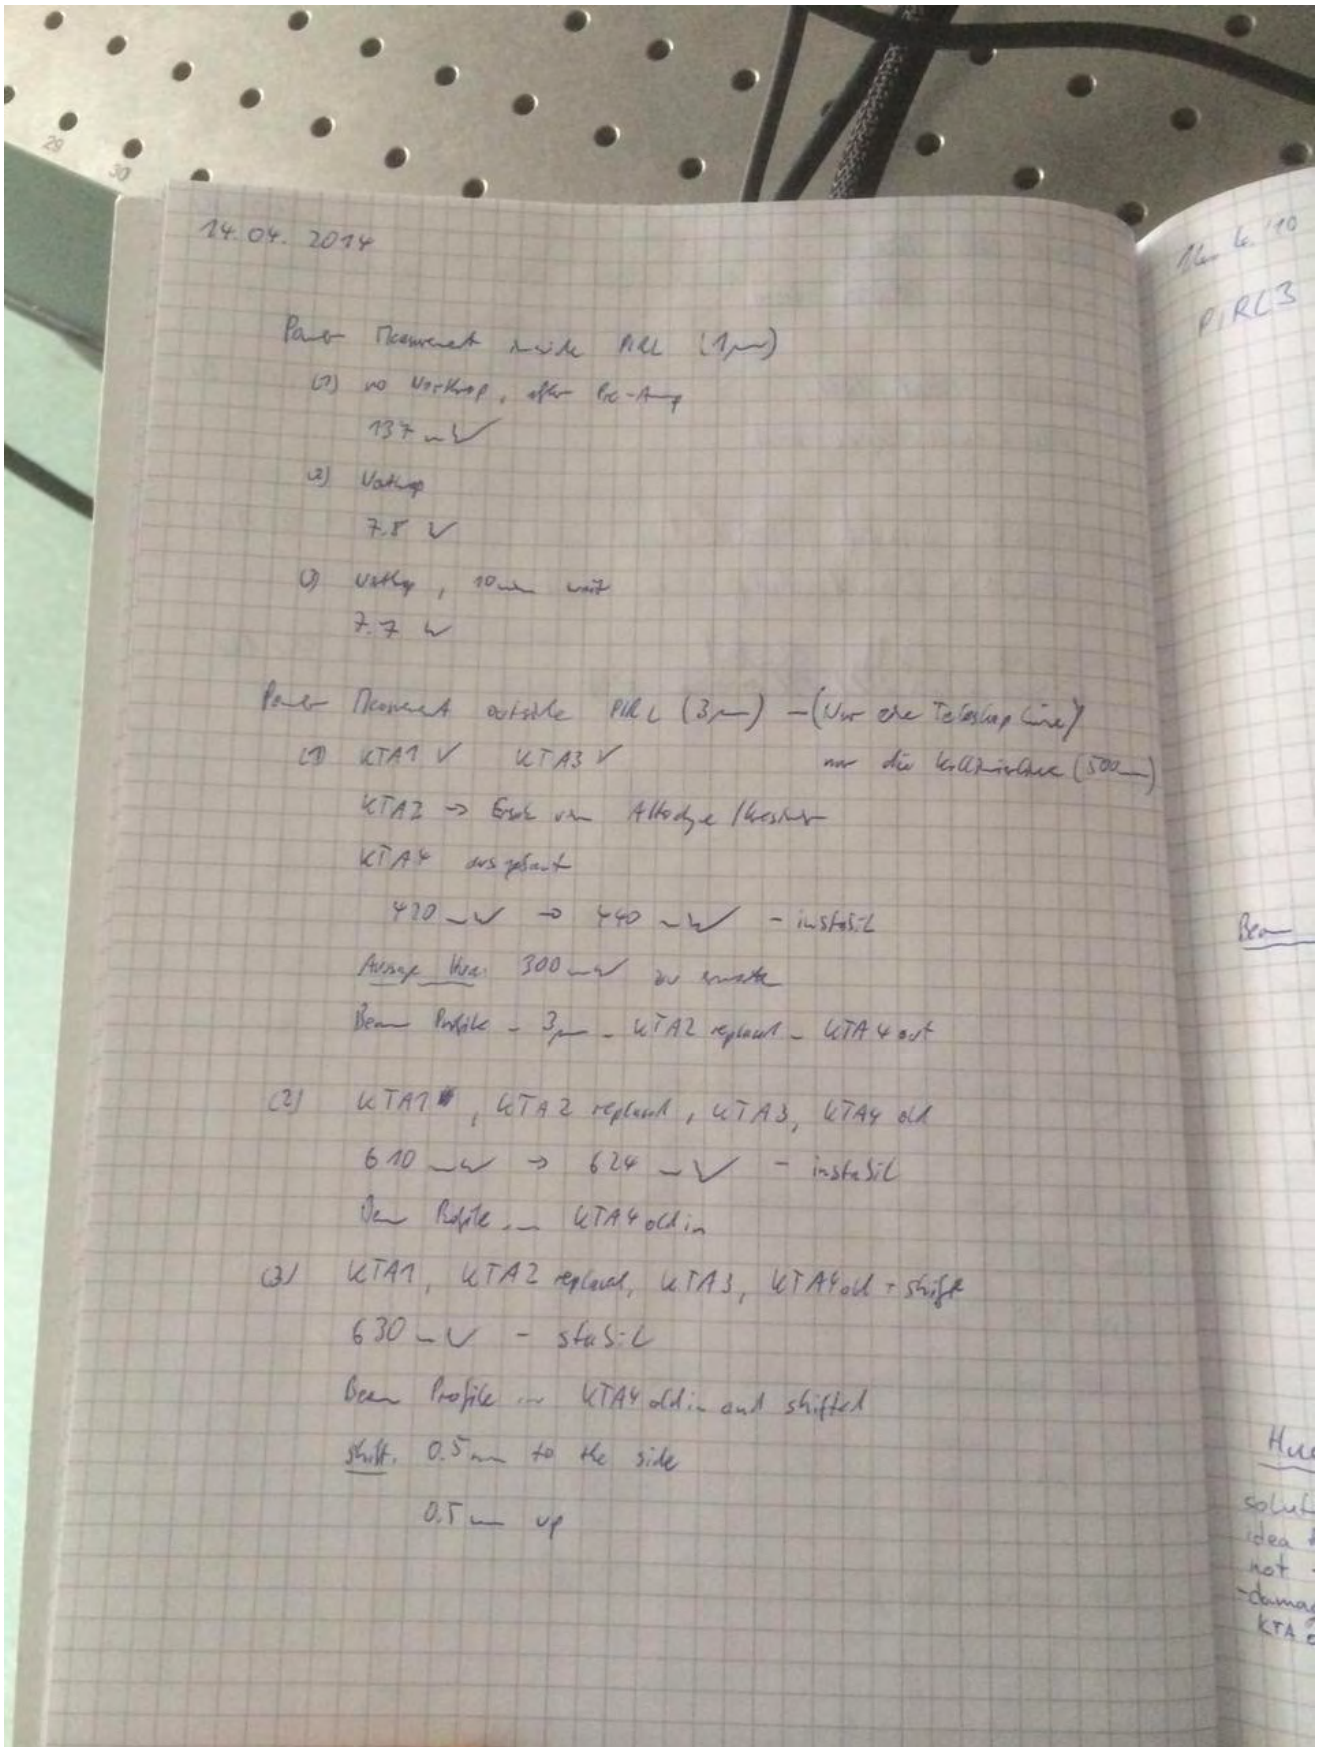 29
30
14.04.2014
Power Measurement inside PIRL (1µm)
(1) no Northrop, after Pre-Amp
137 mW
(2) Northrop
7.8 W
(3) Northrop, 10min wait
7.7 W
Power Measurement outside PIRL (3µm) - (Vor die Teleskop Linse)
(1) KTA1 ✓ KTA3 ✓ nur die (500mm)
KTA2 →
KTA4 ausgebaut
420 mW → 440 mW - instabil
300 mW zu
Beam Profile - 3µm - KTA2 replaced - KTA4 out
(2) KTA1, KTA2 replaced, KTA3, KTA4 old
610 mW → 624 mW - instabil
Beam Profile ... KTA4 old in
(3) KTA1, KTA2 replaced, KTA3, KTA4 old + shift
630 mW - stabil
Beam Profile ... KTA4 old in and shifted
shift: 0.5mm to the side
0.5mm up
PIRL3
Beam
solut
idea
not
-damag
KTA